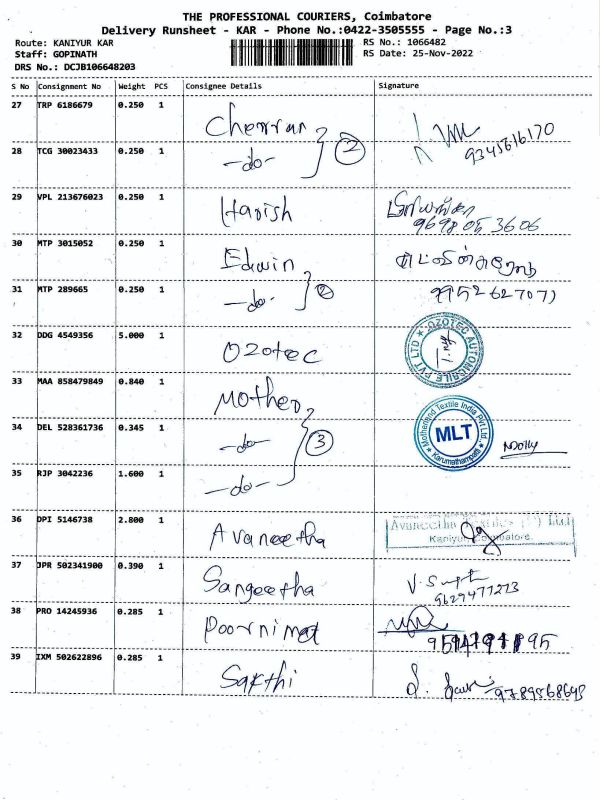 THE PROFESSIONAL COURIERS, Coimbatore
Delivery Runsheet - KAR - Phone No.:0422-3505555 - Page No.:3
Route: KANIYUR KAR RS No.: 1066482
Staff: GOPINATH RS Date: 25-Nov-2022
DRS No.: DCJB106648203
S No Consignment No Weight PCS Consignee Details Signature
27 TRP 6186679 0.250 1 9345616170
28 TCG 30023433 0.250 1 -do- 2
29 VPL 213676023 0.250 1 Harish 96980 53606
30 MTP 3015052 0.250 1 Edwin
31 MTP 289665 0.250 1 -do- 2
32 DDG 4549356 5.000 1 Ozotec OZOTEC AUTOMOBILE PVT LTD
33 MAA 858479849 0.840 1 Mother
34 DEL 528361736 0.345 1 -do- 3 Motherland Textile India Pvt Ltd MLT Karumathampatti
35 RJP 3042236 1.600 1 -do-
36 DPI 5146738 2.800 1 Avaneetha Avaneetha Textiles (P) Ltd Kaniyur, Coimbatore.
37 JPR 502341900 0.390 1 Sangeetha 9629477273
38 PRO 14245936 0.285 1
39 IXM 502622896 0.285 1 Sakthi 9789568698